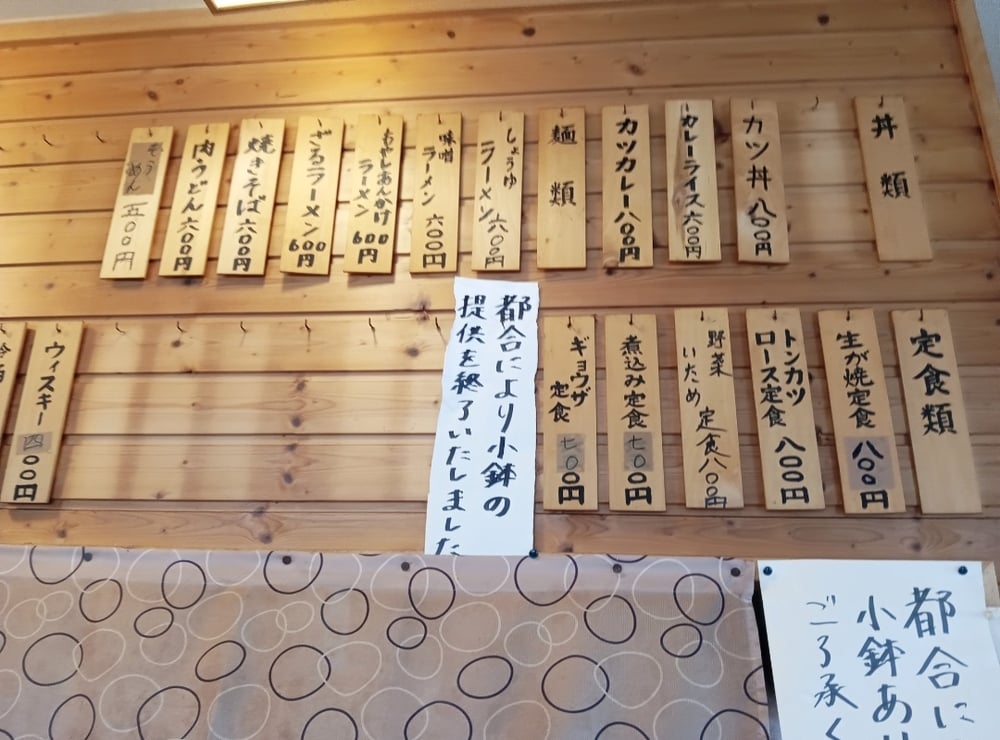 丼類
カツ丼 八〇〇円
カレーライス 六〇〇円
カツカレー 八〇〇円
麺類
しょうゆ
ラーメン 六〇〇円
味噌
ラーメン 六〇〇円
もやしあんかけ
ラーメン 600円
ざるラーメン 600円
焼きそば 六〇〇円
肉うどん 六〇〇円
そうめん 五〇〇円
定食類
生が焼定食 八〇〇円
トンカツ
ロース定食 八〇〇円
野菜
いため 定食 八〇〇円
煮込み定食 七〇〇円
ギョウザ
定食 七〇〇円
都合により小鉢の
提供を終了いたしました
ウィスキー 四〇〇円
都合に
小鉢あ
ご了承く